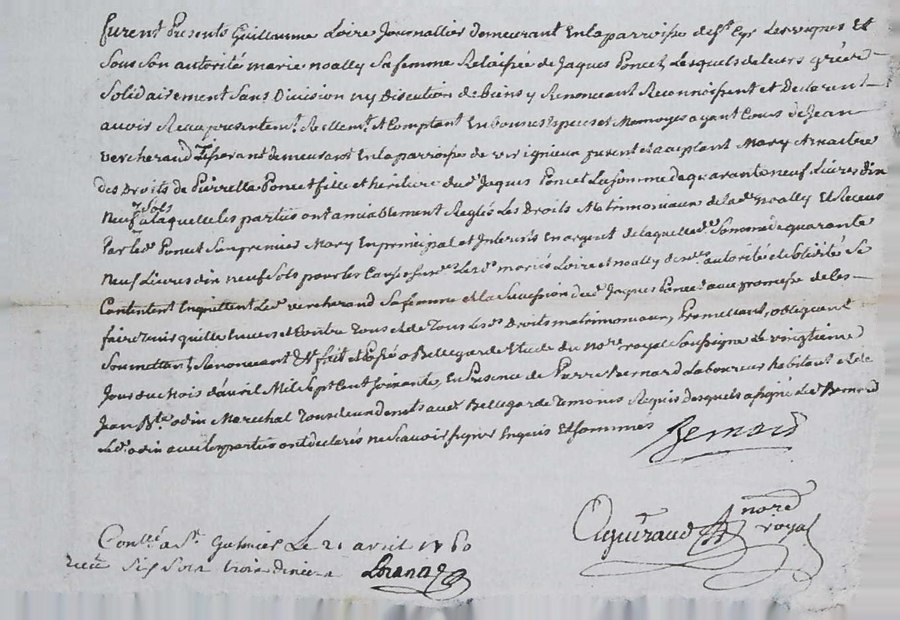 furent Presents Guillaume Loire Journallier demeurant En la parroisse de st Cyr Les vignes Et
Sous Son autorité marie noally Sa femme Relaissée de Jaques Poncet, Lesquels de leurs gré et
Solidairement Sans Division ny Discution de Biens y Renonceant Reconnoissent et Declarent
avoir Receu presentemt Reellemt Et Comptant En bonnes Especes et Monnoyes ayant Cours de Jean
vercherand Tisserant demeurant En la parroisse de virignieux present et acceptant Mary Et maitre
des Droits de Pierrette Poncet fille et heritiere dud Jaques Poncet La somme de quarante neuf Livres dix
neuf sols a laquelle les parties ont amiablement Reglés Les Droits Matrimoniaux de lad noally Et Receus
Par led Poncet Son premier Mary En principal et Interets En argent de laquelle de Somme de quarante
neuf Livres dix neuf Sols pour les Causes Lesd mariés Loire et noally de autorité Se
Contentent En quittent Led vercherand Sa femme et la Succession dud Jaques Poncet avec promesse de les
faire tenir quitte Envers et Contre Tous et de Tous Lesd Droits matrimoniaux, Promettant, obligeant
Soumettant, Renonceant &t fait et Passé a Bellegarde Etude du nore royal Soussigné Le vingtieme
Jour du Mois d'avril Mil Sept Cent Soixante, En Presence de Pierre Bernard Laboureur habitant et de
Jean Bte odin Marechal Tous deux dud Bellegarde Temoins Requis Desquels a signé Led Bernard
Led odin avec les parties ont declarés ne Scavoir signer Enquis Et Sommés
Bernard
nore
royal
Contlé a St Galmier Le 21 avril 1760
Reçu Six Sols trois deniers